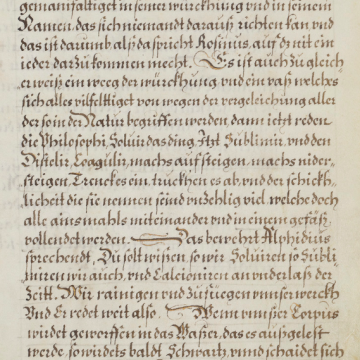 gemanfaltiget in seiner würckhung vnd in seinem
Namen, das sich niemandt darauß richten kan vnd
das ist darumb alß da spricht Rosinus, auf dz nit ein
ieder darzu kommen mecht. Es ist auch zu gleich
er weiß ein weeg der würckhung, vnd ein vaß welchs
sich alles vilfelltiget von wegen der vergleichung aller
der so in der Natur begriffen werden, dann ietzt reden
die Philosophi, Soluir das ding, Itzt Sublimir, vnd den
Distelir, Coagulir, machs auf steigen, machs nider
steigen, Trenckes ein, truckhen es ab, vnd der schickh
licheit die sy nennen seind vnzehlig viel, welche doch
alle ainsmahls mit einander vnd in einem gefäß
vollendet werden. Das bewehrt Alphidius
sprechendt, Du solt wissen, so wir Soluiren so Subli
miren wir auch, vnd Calcioniren an vnderlaß der
Zeitt. Wir rainigen vnd zufuegen vnser werckh
Vnd Er redet weit also. Wenn vnnser Corpus
wirdet geworffen in das Wasser, das es außgelest
werde, so wirdt es baldt Schwartz, vnnd schaidet sich